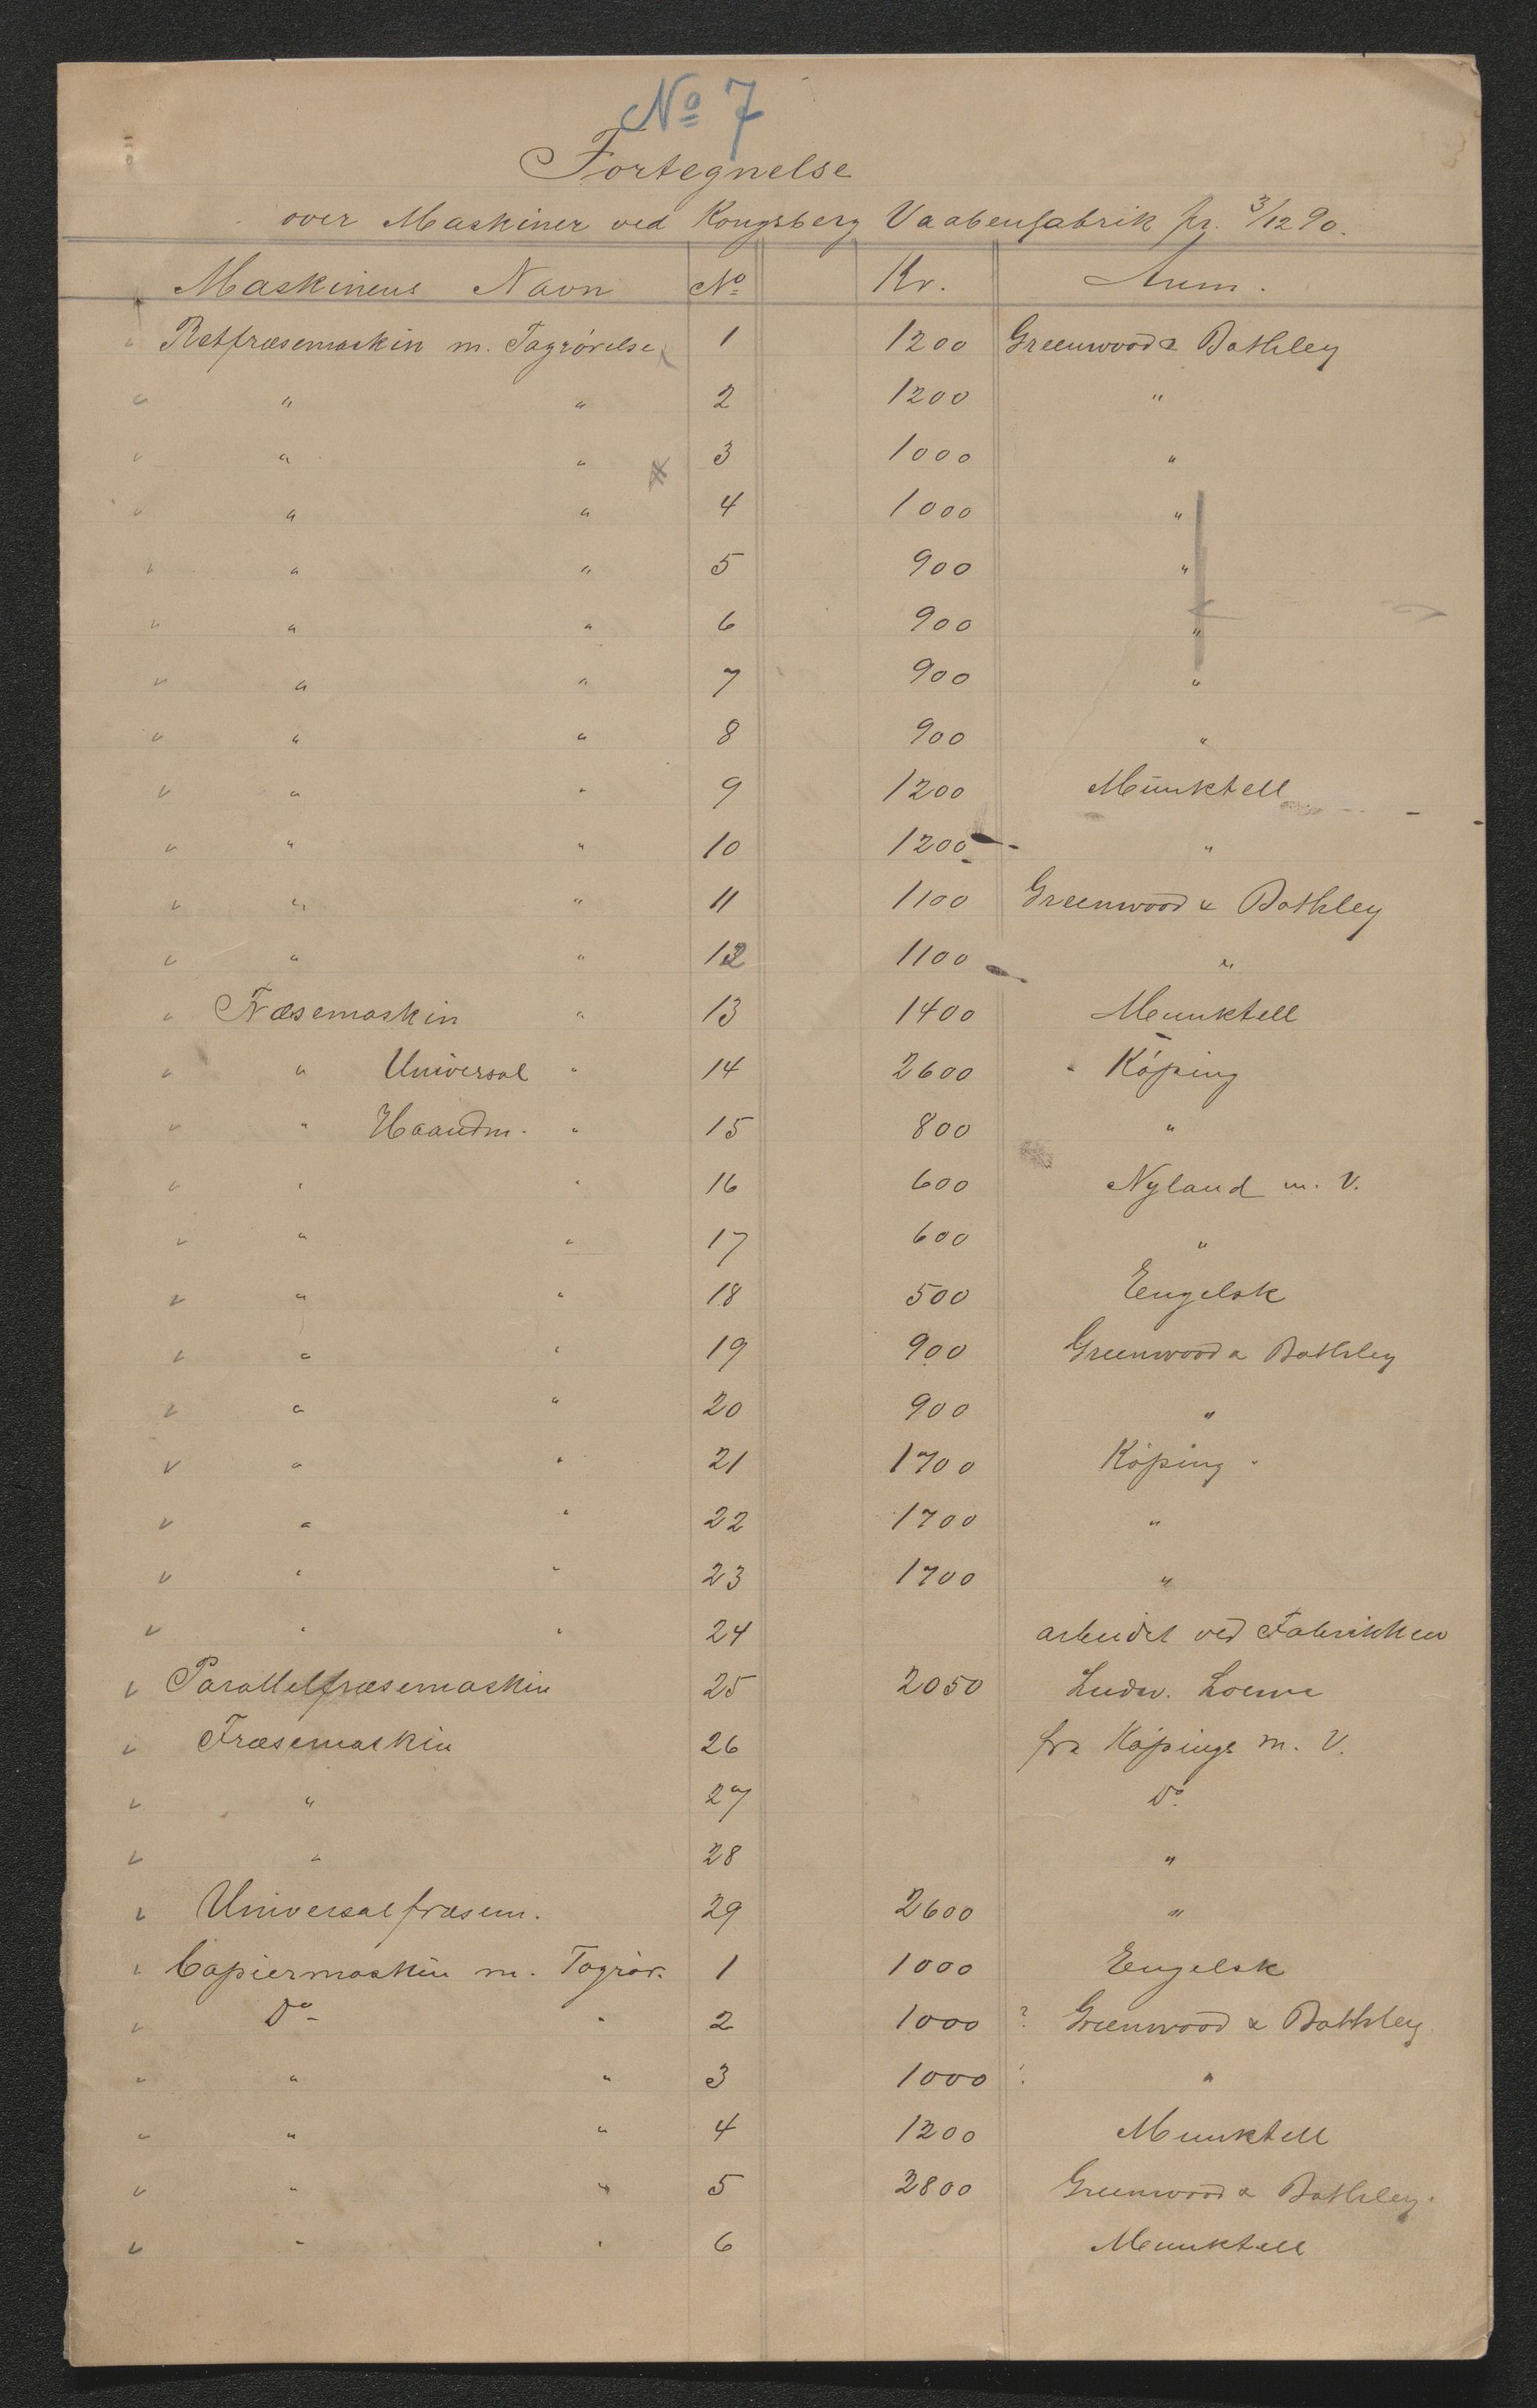 No 7
Fortegnelse
over Maskiner ved Kongsberg Vaabenfabrik pr. 3/12 90.
Maskinens Navn No Kr. Anm.
Retfræsemaskin m. Tagrørelse 1 1200 Greenwood & Bathley
" " 2 1200 "
" " 3 1000 "
" " 4 1000 "
" " 5 900 "
" " 6 900 "
" " 7 900 "
" " 8 900 "
" " 9 1200 Munktell
" " 10 1200 "
" " 11 1100 Greenwood & Bathley
" " 12 1100 "
Fræsemaskin " 13 1400 Munktell
" Universal " 14 2600 " Köping
" Haandm. " 15 800 "
" " 16 600 Nyland m. V.
" " 17 600 "
" " 18 500 Engelsk
" " 19 900 Greenwood & Bathley
" " 20 900 "
" " 21 1700 Köping
" " 22 1700 "
" " 23 1700 "
" " 24 arbeidet ved Fabrikken
Parallelfræsemaskin 25 2050 Ludw. Loewe
Fræsemaskin 26 fra Köpings m. V.
" 27 Do
" 28 "
Universalfræsem. 29 2600 "
Copiermaskin m. Tagrør. 1 1000 Engelsk
Do " 2 1000 ? Greenwood & Bathley
" " 3 1000 "
" " 4 1200 Munktell
" " 5 2800 Greenwood & Bathley.
" " 6 Munktell